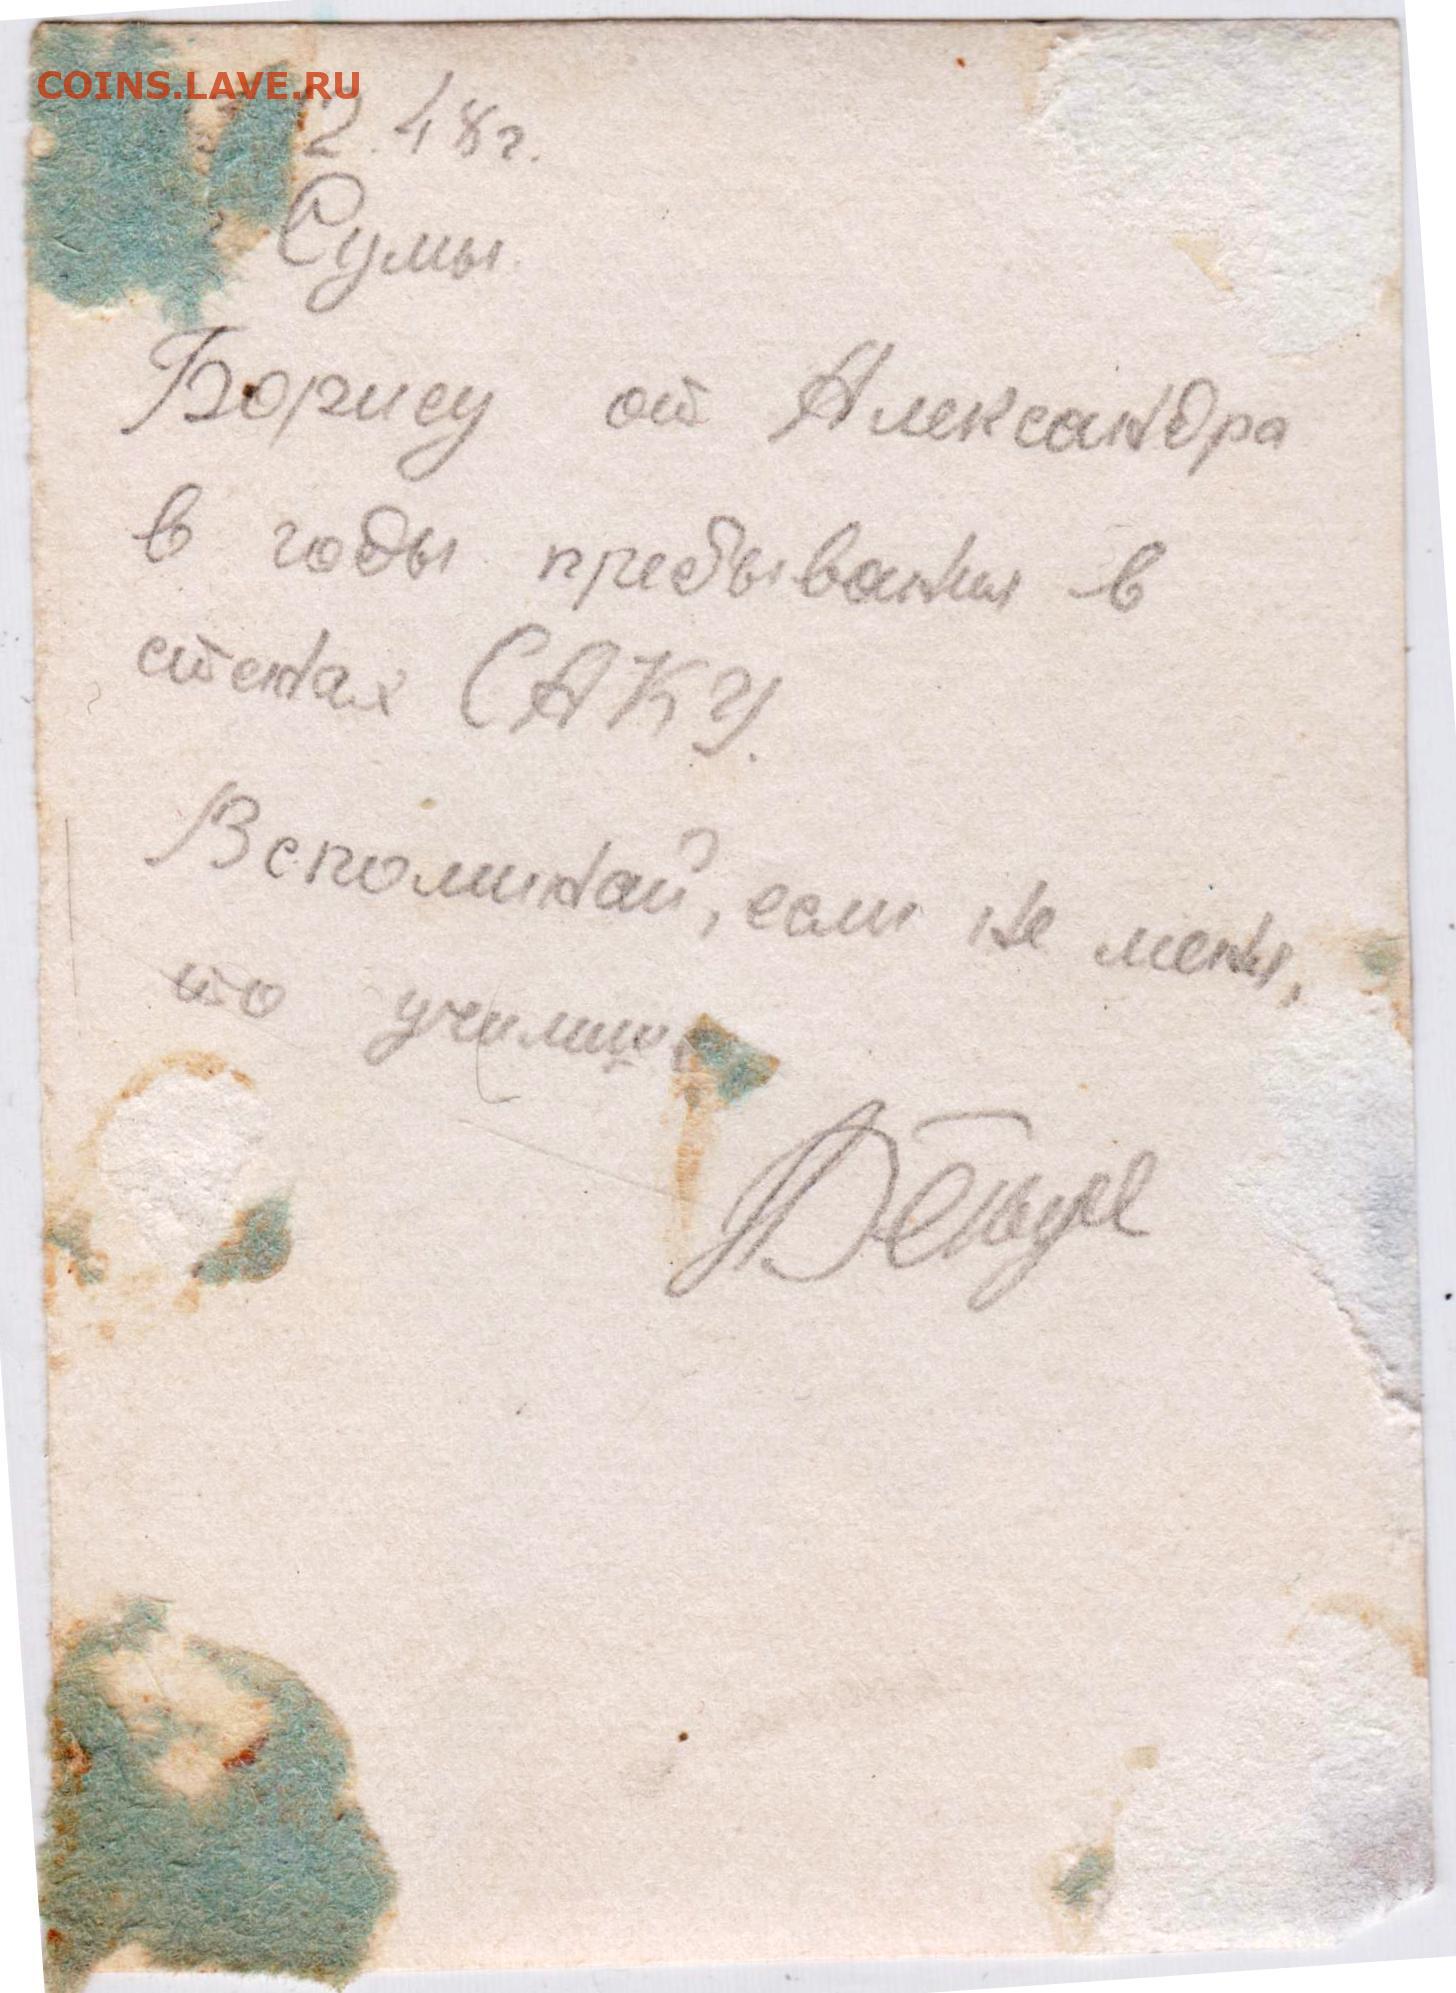 COINS.LAVE.RU
2.48г.
Сумы.
Борису от Александра
в годы пребывания в
стенах САКУ.
Вспоминай, если не меня,
то училищ